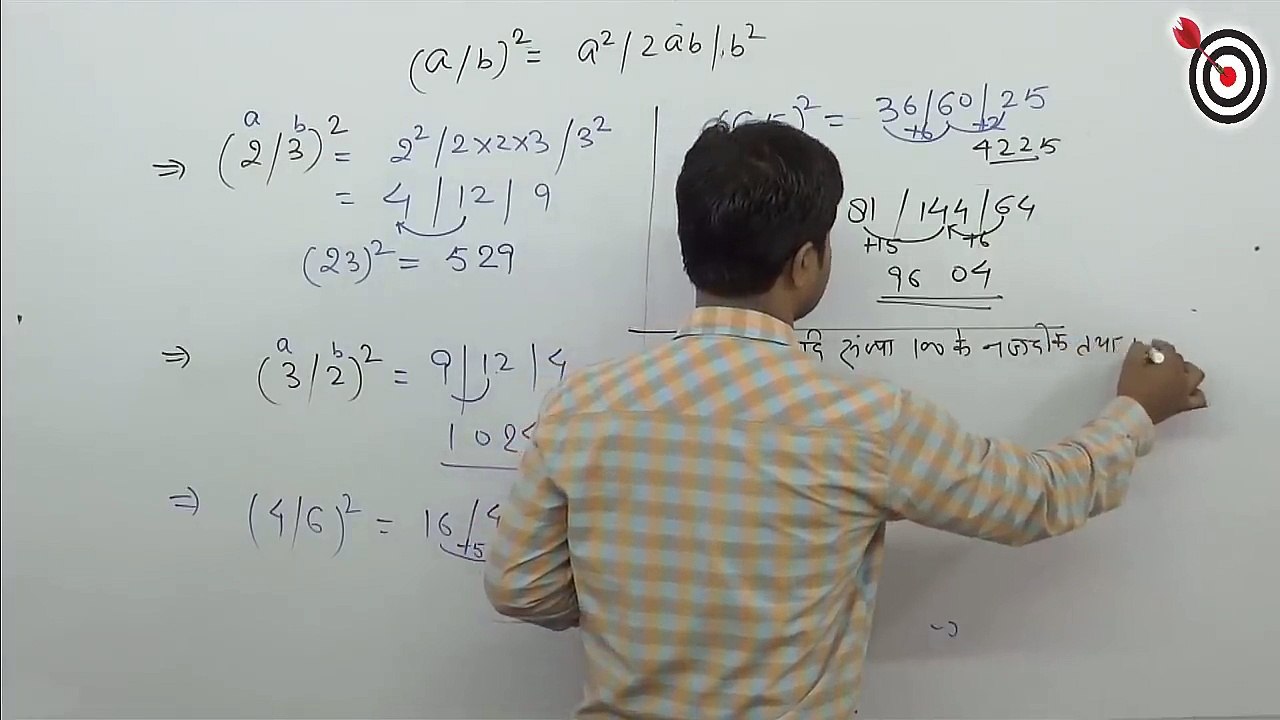 (a/b)² = a²/2ab/b²
a b
(2/3)² = 2²/2×2×3/3²
= 4/12/9
(23)² = 529
a b
(3/2)² = 9/12/4
102
(4/6)² = 16/4
+5
)² = 36/60/25
+6 +2
4225
81/144/64
+15 +6
96 04
दि संख्या 100 के नजदीक तथा